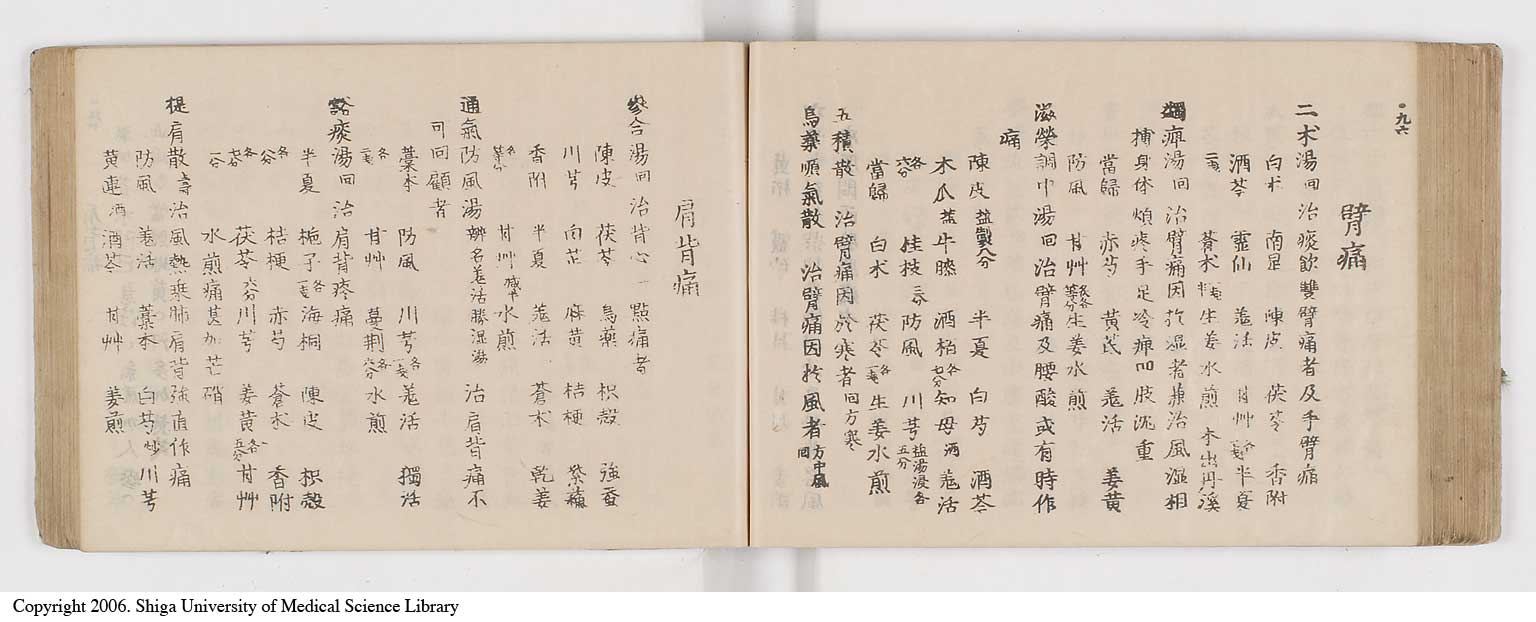 九六
臂痛
二朮湯回 治痰飲雙臂痛者及手臂痛
白朮 南星 陳皮 茯苓 香附
酒芩 靈仙 羌活 甘艸 半夏
蒼朮 生姜水煎 本出丹溪
蠲痺湯回 治臂痛因於湿者兼治風濕相
搏身体煩疼手足冷痺四肢沉重
當歸 赤芍 黃芪 羌活 姜黃
防風 甘艸 生姜水煎
滋榮調中湯回 治臂痛及腰酸或有時作
痛
陳皮盐製八分 半夏 白芍 酒芩
木瓜 牛膝 酒柏 知母酒 羌活
各六分 桂枝三分 防風 川芎盐湯浸各五分
當歸 白朮 茯苓 生姜水煎
五積散 治臂痛因於寒者回方寒
烏藥順氣散 治臂痛因於風者回方中風
肩背痛
參合湯回 治背心一點痛者
陳皮 茯苓 烏藥 枳殼 強蚕
川芎 白芷 麻黃 桔梗 紫蘓
香附 半夏 羌活 蒼朮 乾姜
各等分 甘艸減半 水煎
通氣防風湯 郷名羌活勝湿湯 治肩背痛不
可回顧者
藁本 防風 川芎 羌活 獨活
甘艸 蔓荆 水煎
豁痰湯回 治肩背疼痛
半夏 梔子 海桐 陳皮 枳殼
桔梗 赤芍 蒼朮 香附
茯苓六分 川芎 姜黃各五分 甘艸
水煎痛甚加芒硝
提肩散壽 治風熱乘肺肩背強直作痛
防風 羌活 藁本 白芍炒 川芎
黃連酒 酒芩 甘艸 姜煎
Copyright 2006. Shiga University of Medical Science Library